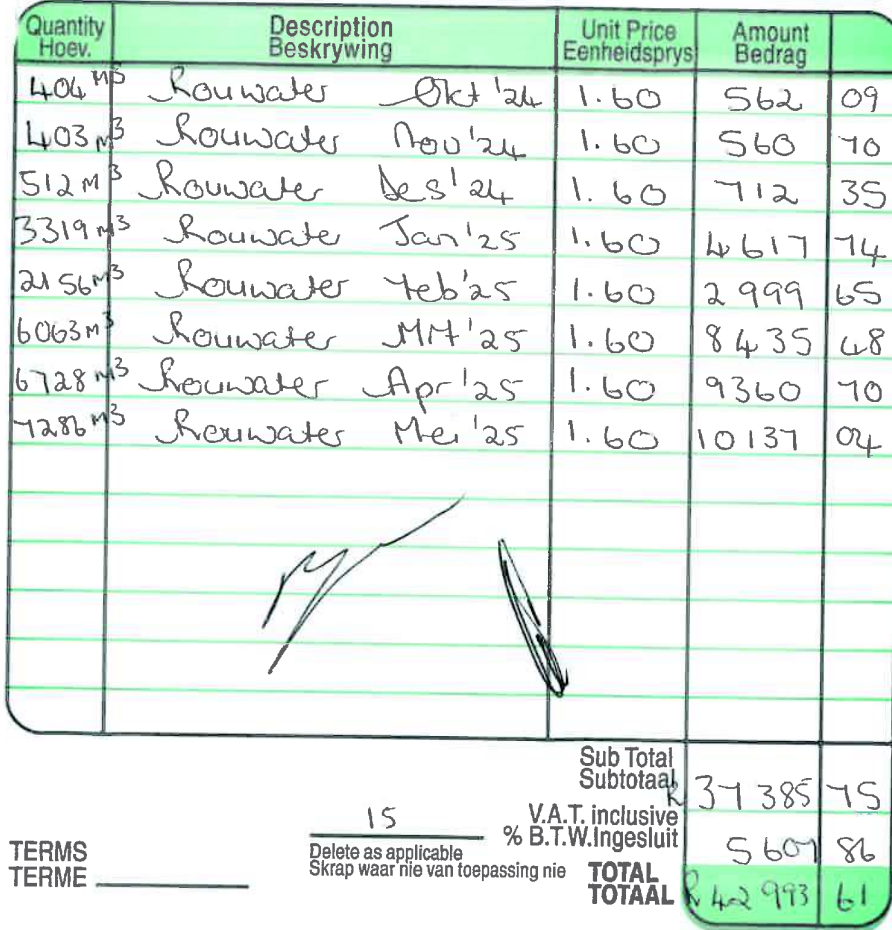 Quantity Hoev. Description Beskrywing Unit Price Eenheidsprys Amount Bedrag
404 M3 Rouwater Okt '24 1.60 562 09
403 M3 Rouwater Nov '24 1.60 560 70
512 M3 Rouwater Des '24 1.60 712 35
3319 M3 Rouwater Jan '25 1.60 4617 74
2156 M3 Rouwater Feb '25 1.60 2 999 65
6063 M3 Rouwater MRT '25 1.60 8 435 48
6728 M3 Rouwater Apr '25 1.60 9360 70
7286 M3 Rouwater Mei '25 1.60 10 137 04
Sub Total
Subtotaal R 37 385 75
15 V.A.T. inclusive
% B.T.W.Ingesluit 5 607 86
Delete as applicable
Skrap waar nie van toepassing nie
TERMS
TERME
TOTAL
TOTAAL R 42 993 61